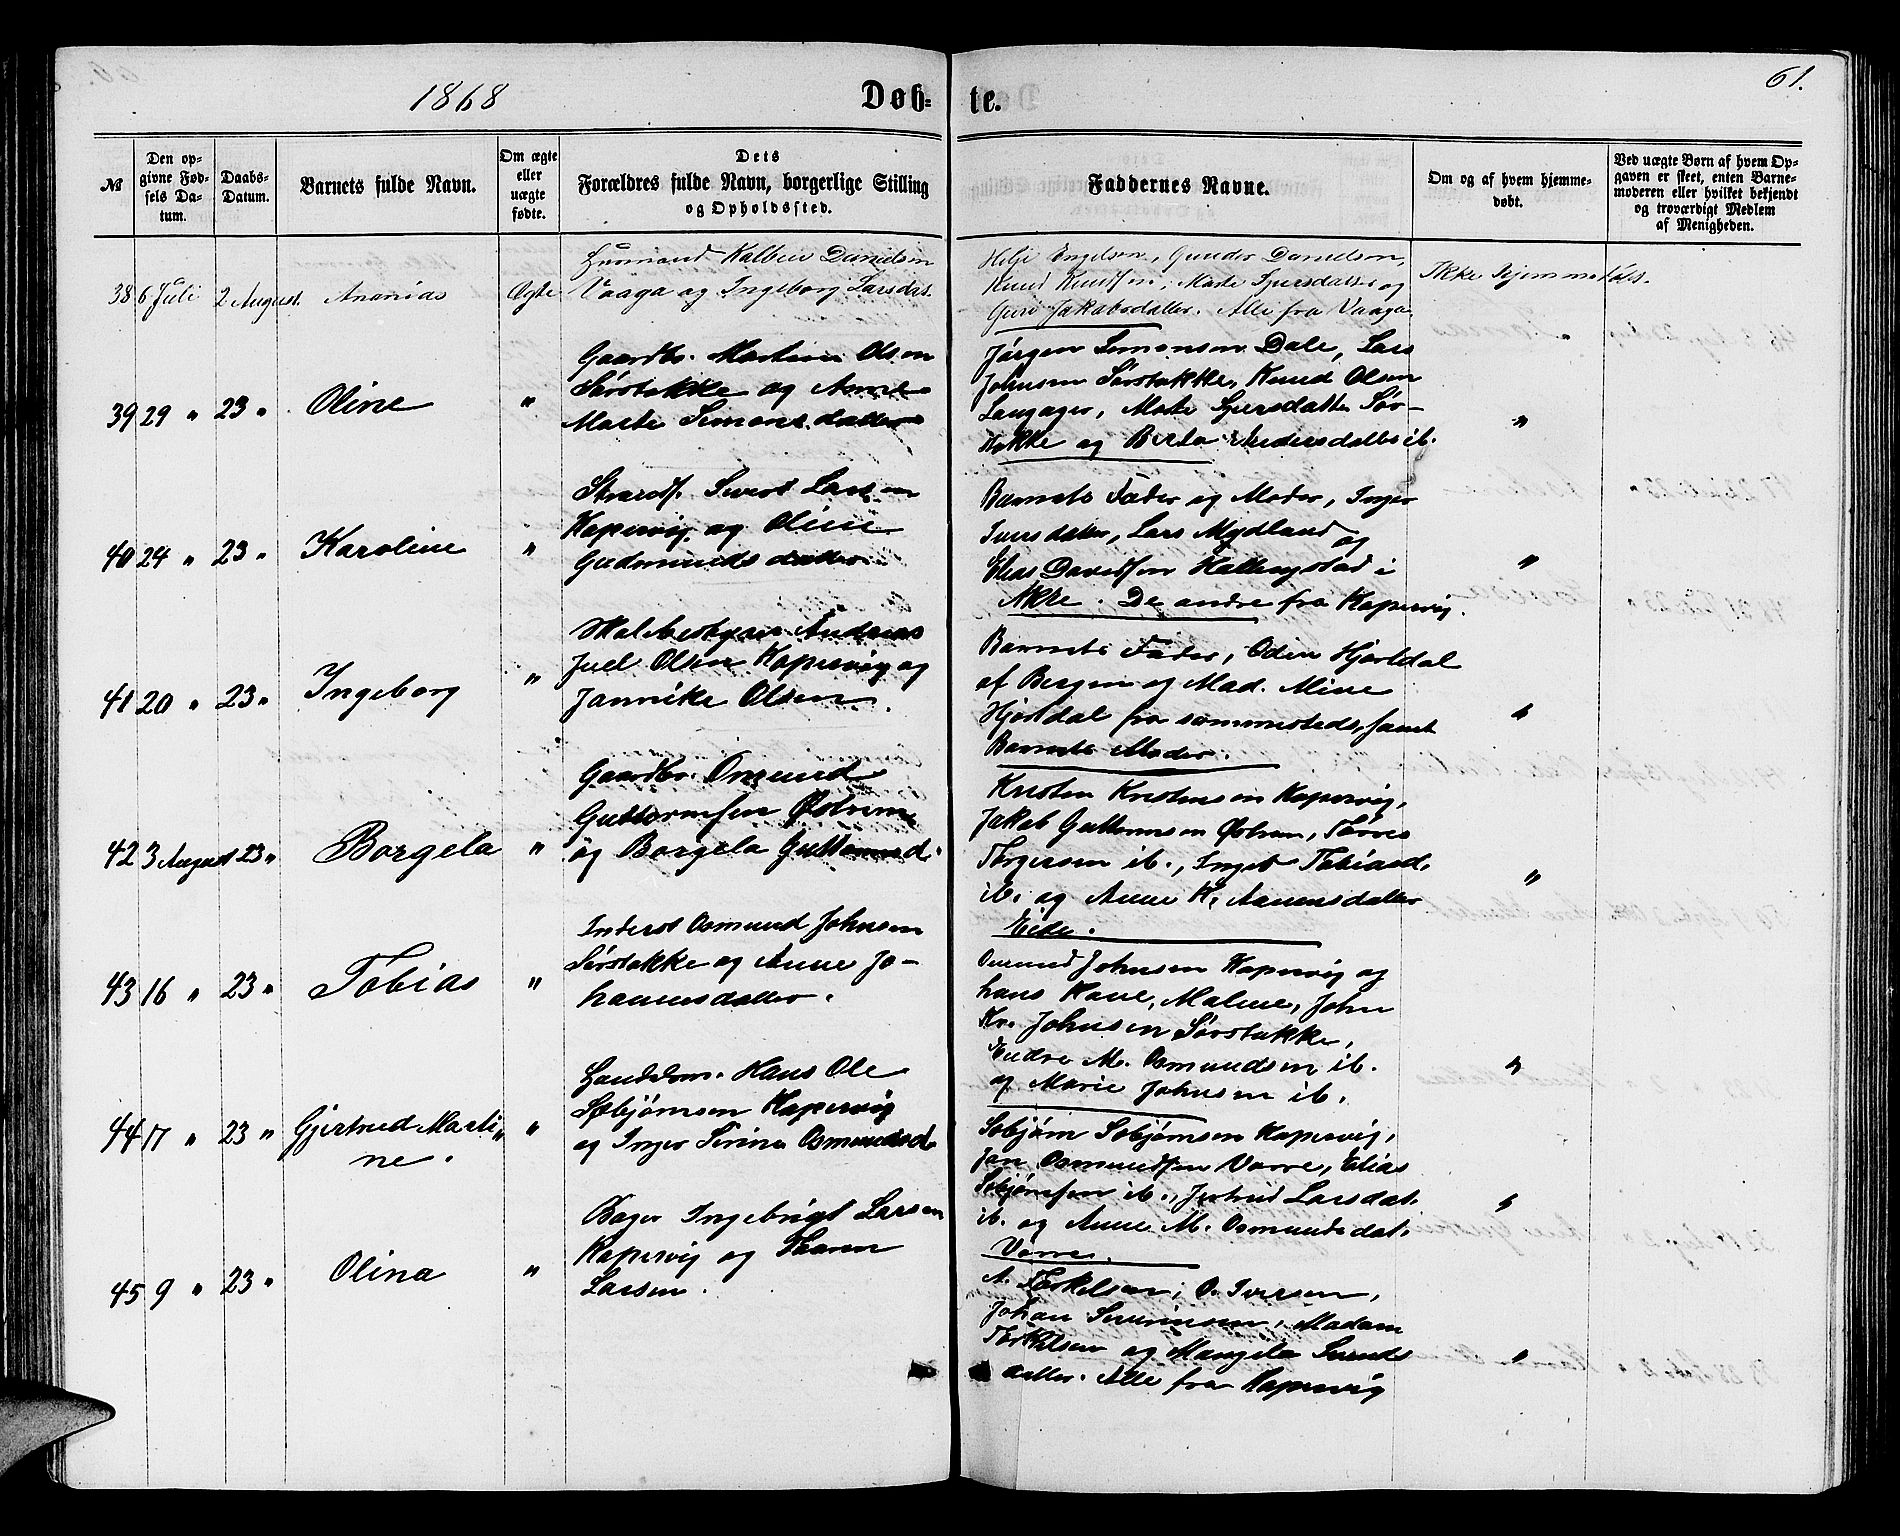 1868
Døb-
te.
61.
№
Den op-
givne Fød-
sels Da-
tum.
Daabs-
Datum.
Barnets fulde Navn.
Om ægte
eller
uægte
fødte.
Dets
Forældres fulde Navn, borgerlige Stilling
og Opholdssted.
Faddernes Navne.
Om og af hvem hjemme-
døbt.
Ved uægte Børn af hvem Op-
gaven er skeet, enten Barne-
moderen eller hvilket bekjendt
og troværdigt Medlem
af Menigheden.
38 6 Juli 2 August. Ananias Ægte
Huusmand Danielsen
Vaaga og Ingeborg Larsdat.
Helje Engelsen, Gunder Danielsen,
Knud Knudsen, Marte og
Guri Jakobsdatter. Alle fra Vaaga.
Ikke hjemmedøbt.
39 29 " 23 " Oline "
Gaardbr. Martin Olsen
Sørstokke og Anne
Marte Simonsdatter
Jørgen Simonsen Dale, Lars
Johnsen Sørstokke, Knud Olsen
Langager, Marte Sjursdatter Sør-
stokke og Berta Andersdatter ib.
"
40 24 " 23 " Karoline "
Strands. Sivert Larsen
Kopervig og Oline
Gudmundsdatter
Barnets Fader og Moder, Inger
Iversdatter, Lars Mydland og
Elias Davidsen Hettingstad i
Akre. De andre fra Kopervig.
"
41 20 " 23 " Ingeborg "
Andreas
Juel Olsen Kopervig og
Jannike Olsen.
Barnets Fader, Odin Hjortdal
af Bergen og Mad. Mine
Hjortdal fra sammesteds, samt
Barnets Moder.
"
42 3 August 23 " Borgela "
Gaardbr. Osmund
Guttormsen Østrem
og Borgela Guttormsd.
Kristen Kristensen Kopervig,
Jakob Guttormsen Østrem, Tørres
Torgersen ib., Inger Tobiasd.
ib. og Anne K. Aanensdatter
Eide.
"
43 16 " 23 " Tobias "
Inderst Osmund Johnsen
Sørstokke og Anne Jo-
hannesdatter.
Osmund Johnsen Kopervig og
hans Kone, Malene, John
Kr. Johnsen Sørstokke,
Endre M. Osmundsen ib.
og Marie Johnsen ib.
"
44 17 " 23 " Gjertrud Marti-
ne. "
Hans Ole
Sebjørnsen Kopervig
og Inger Serina Osmundsd.
Sebjørn Sebjørnsen Kopervig,
Jan Osmundsen Vorre, Elias
Sebjørnsen ib., Jertrud Larsdat.
ib. og Anne M. Osmundsdat.
Vorre.
"
45 9 " 23 " Olina "
Bager Ingebrigt Larsen
Kopervig og Karen
Larsen.
A. Torkelsen, O. Iversen,
Johan Severinsen, Madam
Torkelsen og Mangela Svends
datter. Alle fra Kopervig
"